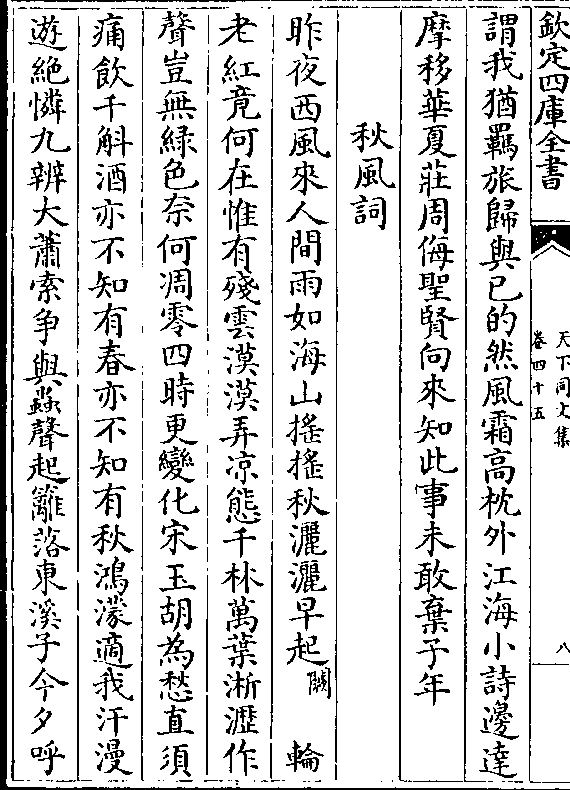 欽定四庫全書
天下同文集
卷四十五
八
謂我猶羈旅歸與已的然風霜高枕外江海小詩邊達
摩移華夏莊周侮聖賢向來知此事未敢棄子年
秋風詞
昨夜西風來人間雨如海山搖搖秋灑灑早起闕輪
老紅竟何在惟有殘雲漠漠弄凉態千林萬葉淅瀝作
聲豈無綠色奈何凋零四時更變化宋玉胡為愁直須
痛飲千斛酒亦不知有春亦不知有秋鴻濛適我汗漫
遊絶憐九辨大蕭索争與蟲聲起籬落東溪子今夕呼